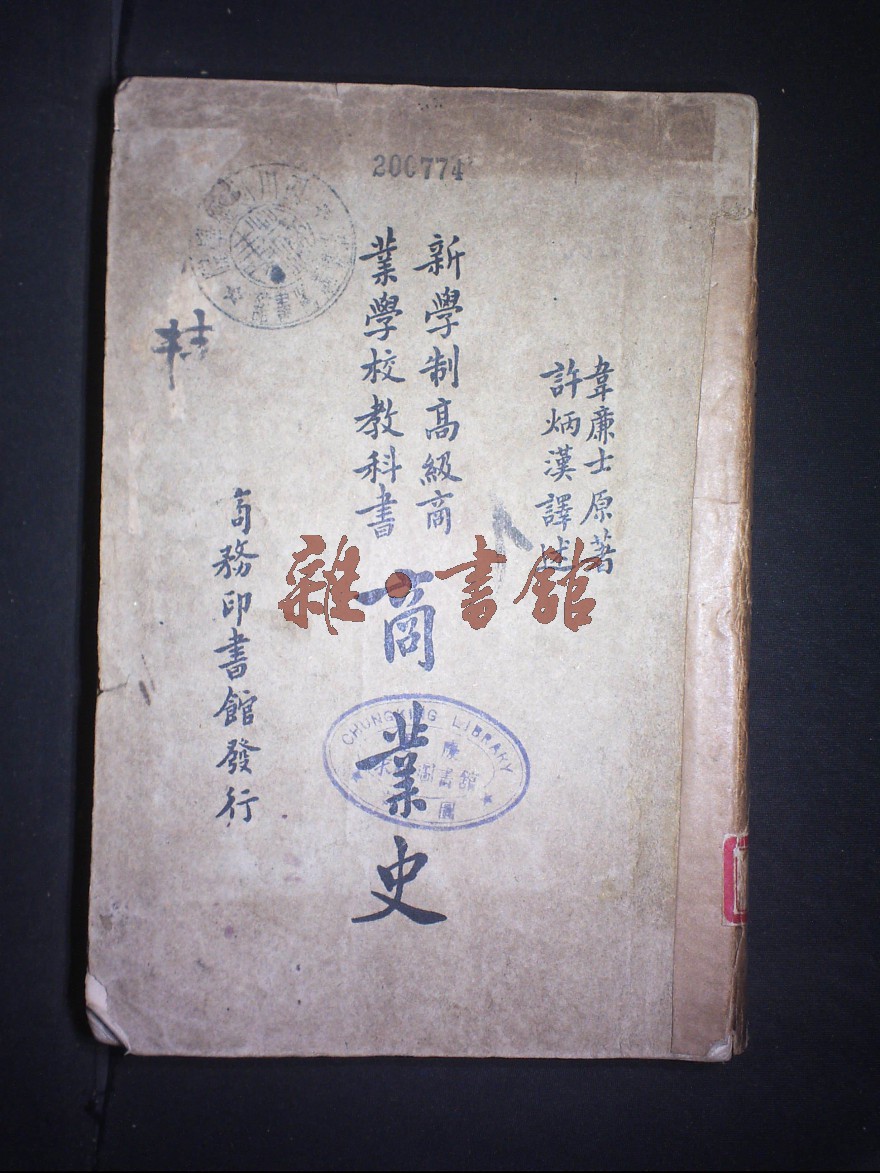 200774
韋廉士原著
許炳漢譯述
新學制高級商
業學校教科書
商業史
商務印書館發行
CHUNGKING LIBRARY
雜·書館